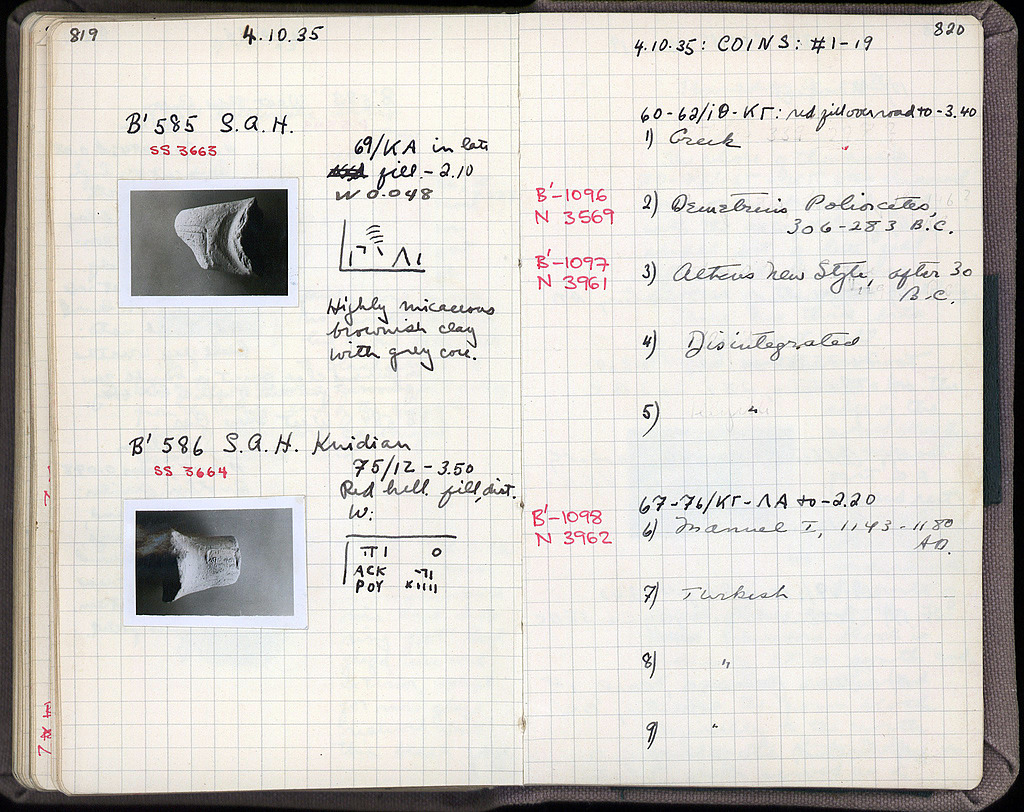 819
4.10.35
B' 585 S.A.H.
SS 3663
69/ΚΑ in late
fill - 2.10
W 0.048
Γ Λ Ι
Highly micaceous
brownish clay
with grey core.
B' 586 S.A.H. Knidian
SS 3664
75/ΙΖ - 3.50
Red hell. fill, dist.
W:
ΠΙ Ο
ΑCΚ
ΡΟΥ
820
4.10.35: COINS: #1-19
60-62/ΙΘ-ΚΓ: red fill over road to -3.40
1) Greek
B'-1096
N 3569
2) Demetrius Poliorcetes,
306-283 B.C.
B'-1097
N 3961
3) Athens New Style, after 30
B.C.
4) Disintegrated
5) "
67-76/ΚΓ-ΛΑ to -2.20
B'-1098
N 3962
6) Manuel I, 1143-1180
AD.
7) Turkish
8) "
9) "